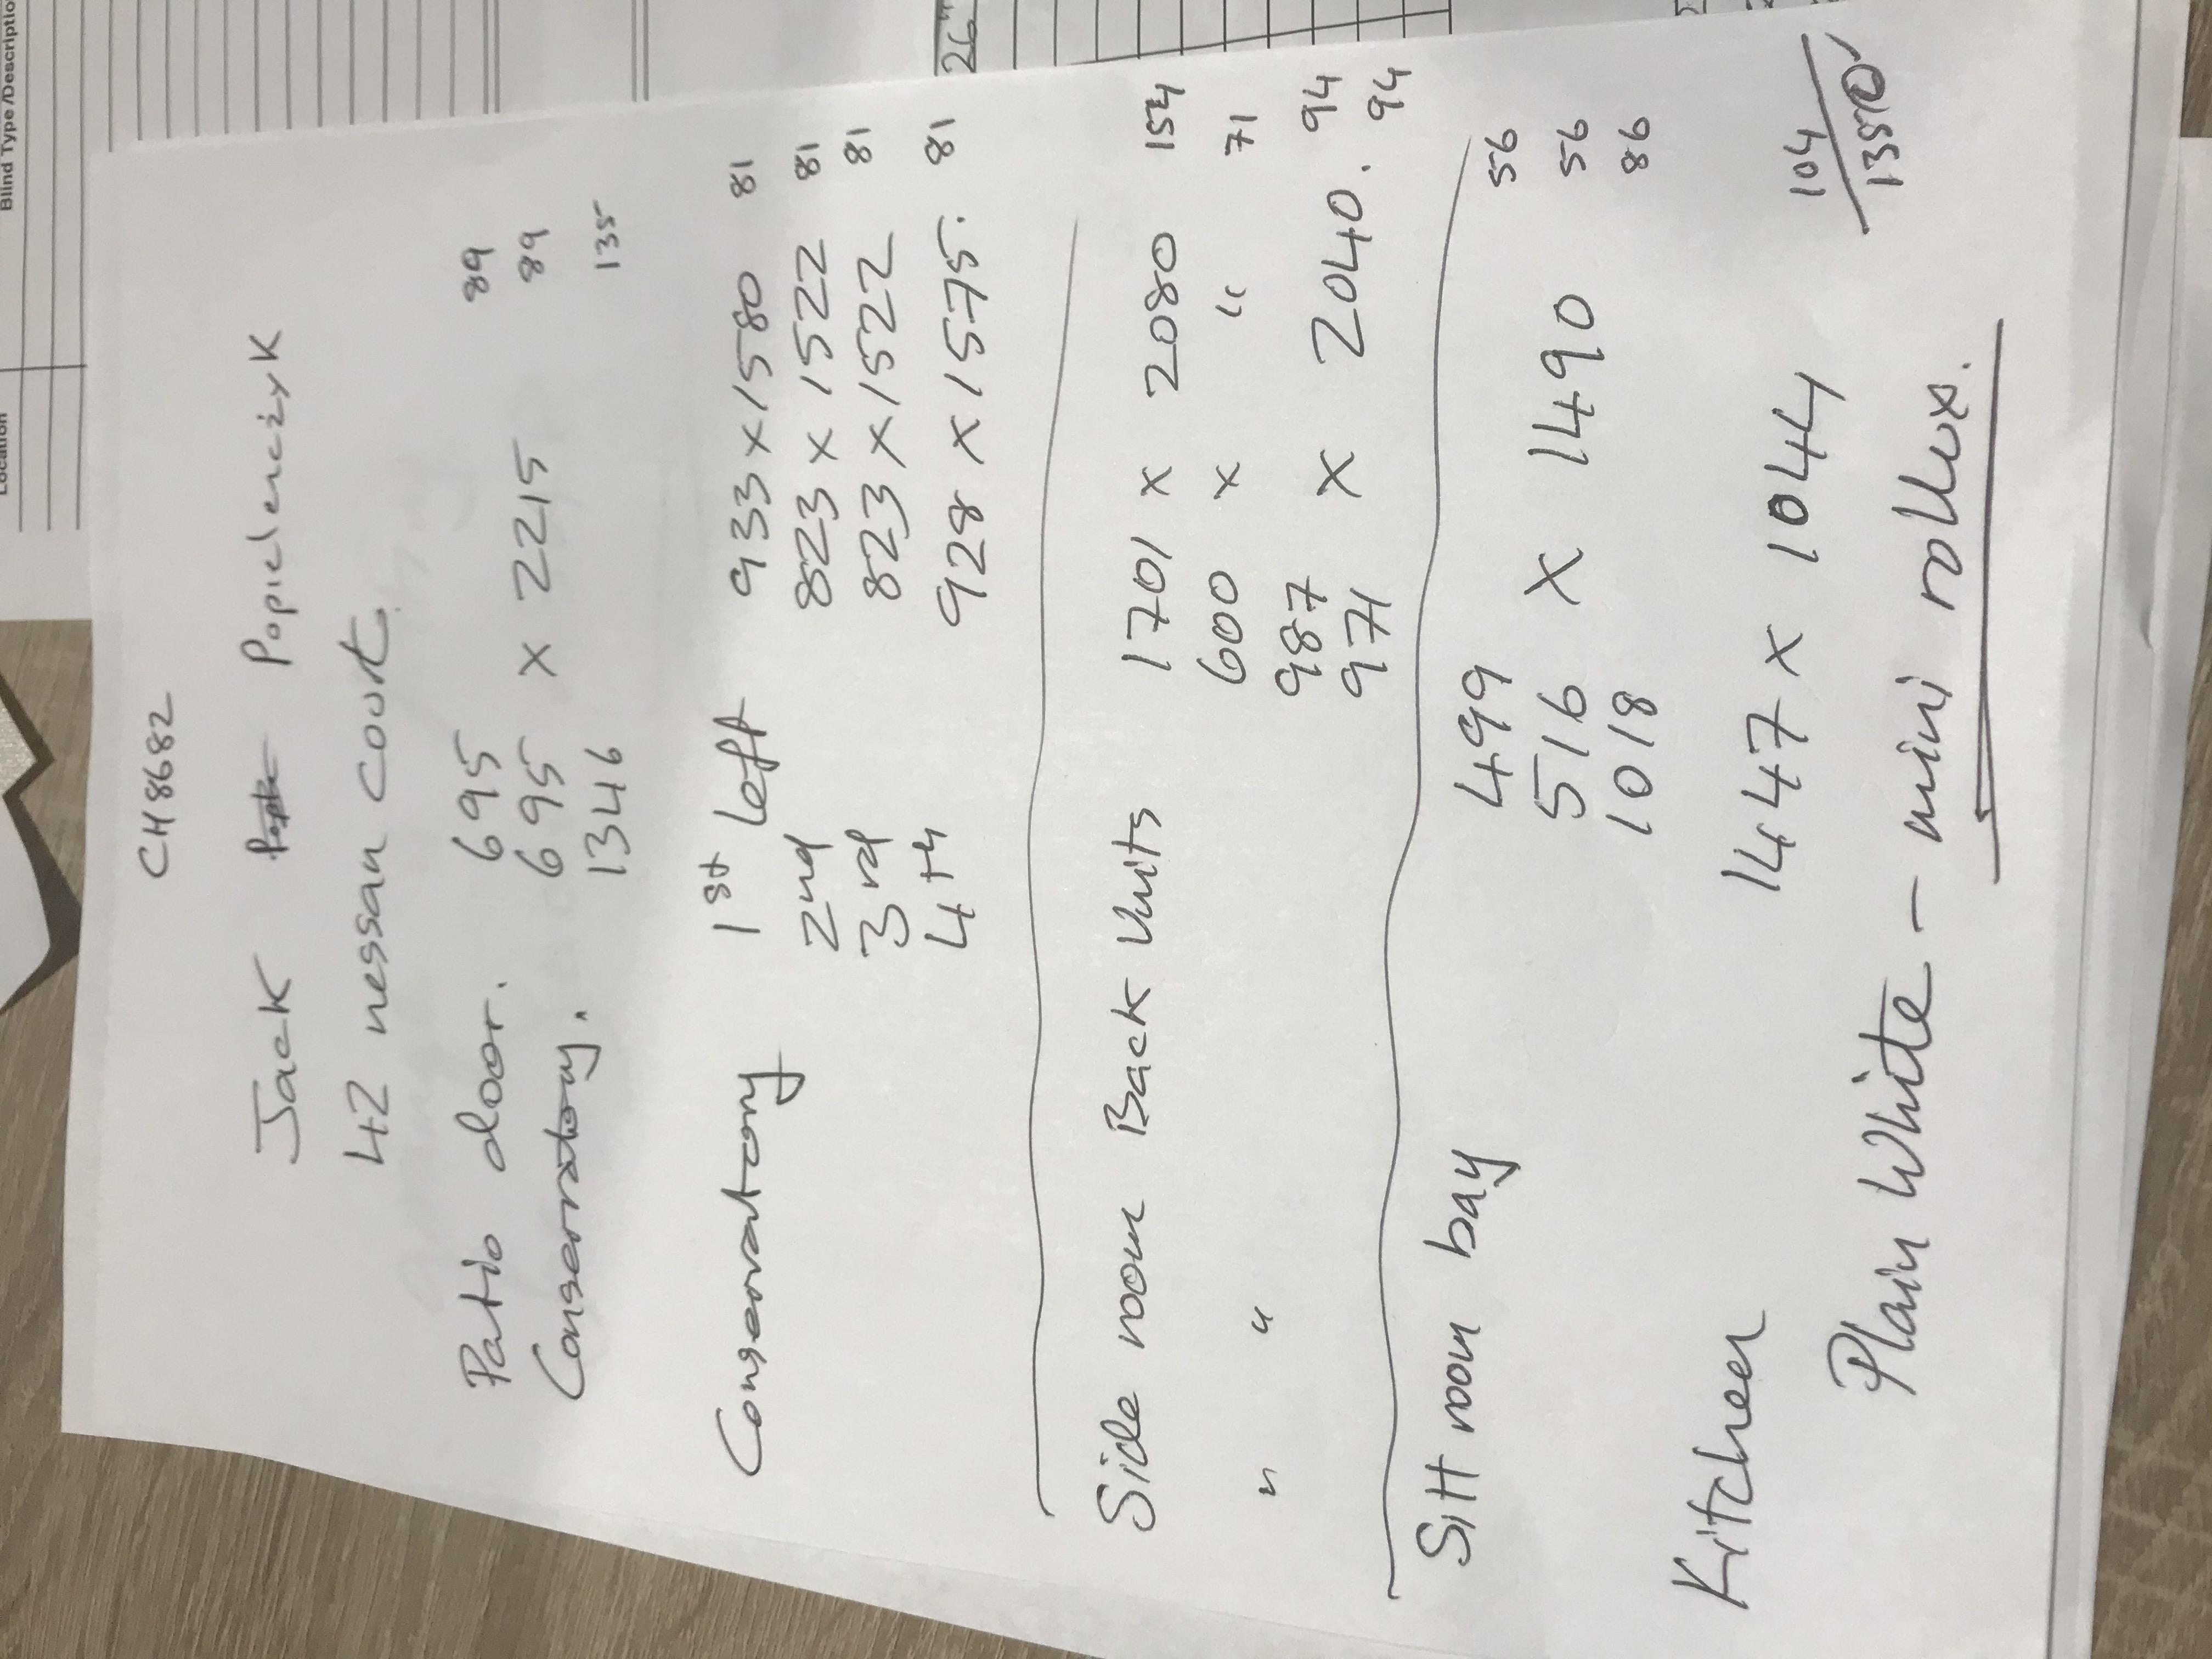 CH8682
Jack Popielenczyk
42 nessan court
Patio door. 695 89
Conservatory. 695 x 2215 89
1346 135
Conservatory 1st Left 933 x 1580 81
2nd 823 x 1522 81
3rd 823 x 1522 81
4th 928 x 1575. 81
Side room Back Units 1701 x 2080 154
" " 600 x " 71
987 x 2040. 94
971 94
Sitt room bay 499 56
516 x 1490 56
1018 86
Kitchen 1447 x 1044 104
1350
Plain White - mini rollers.
Blind Type/Descriptio
Location
26"